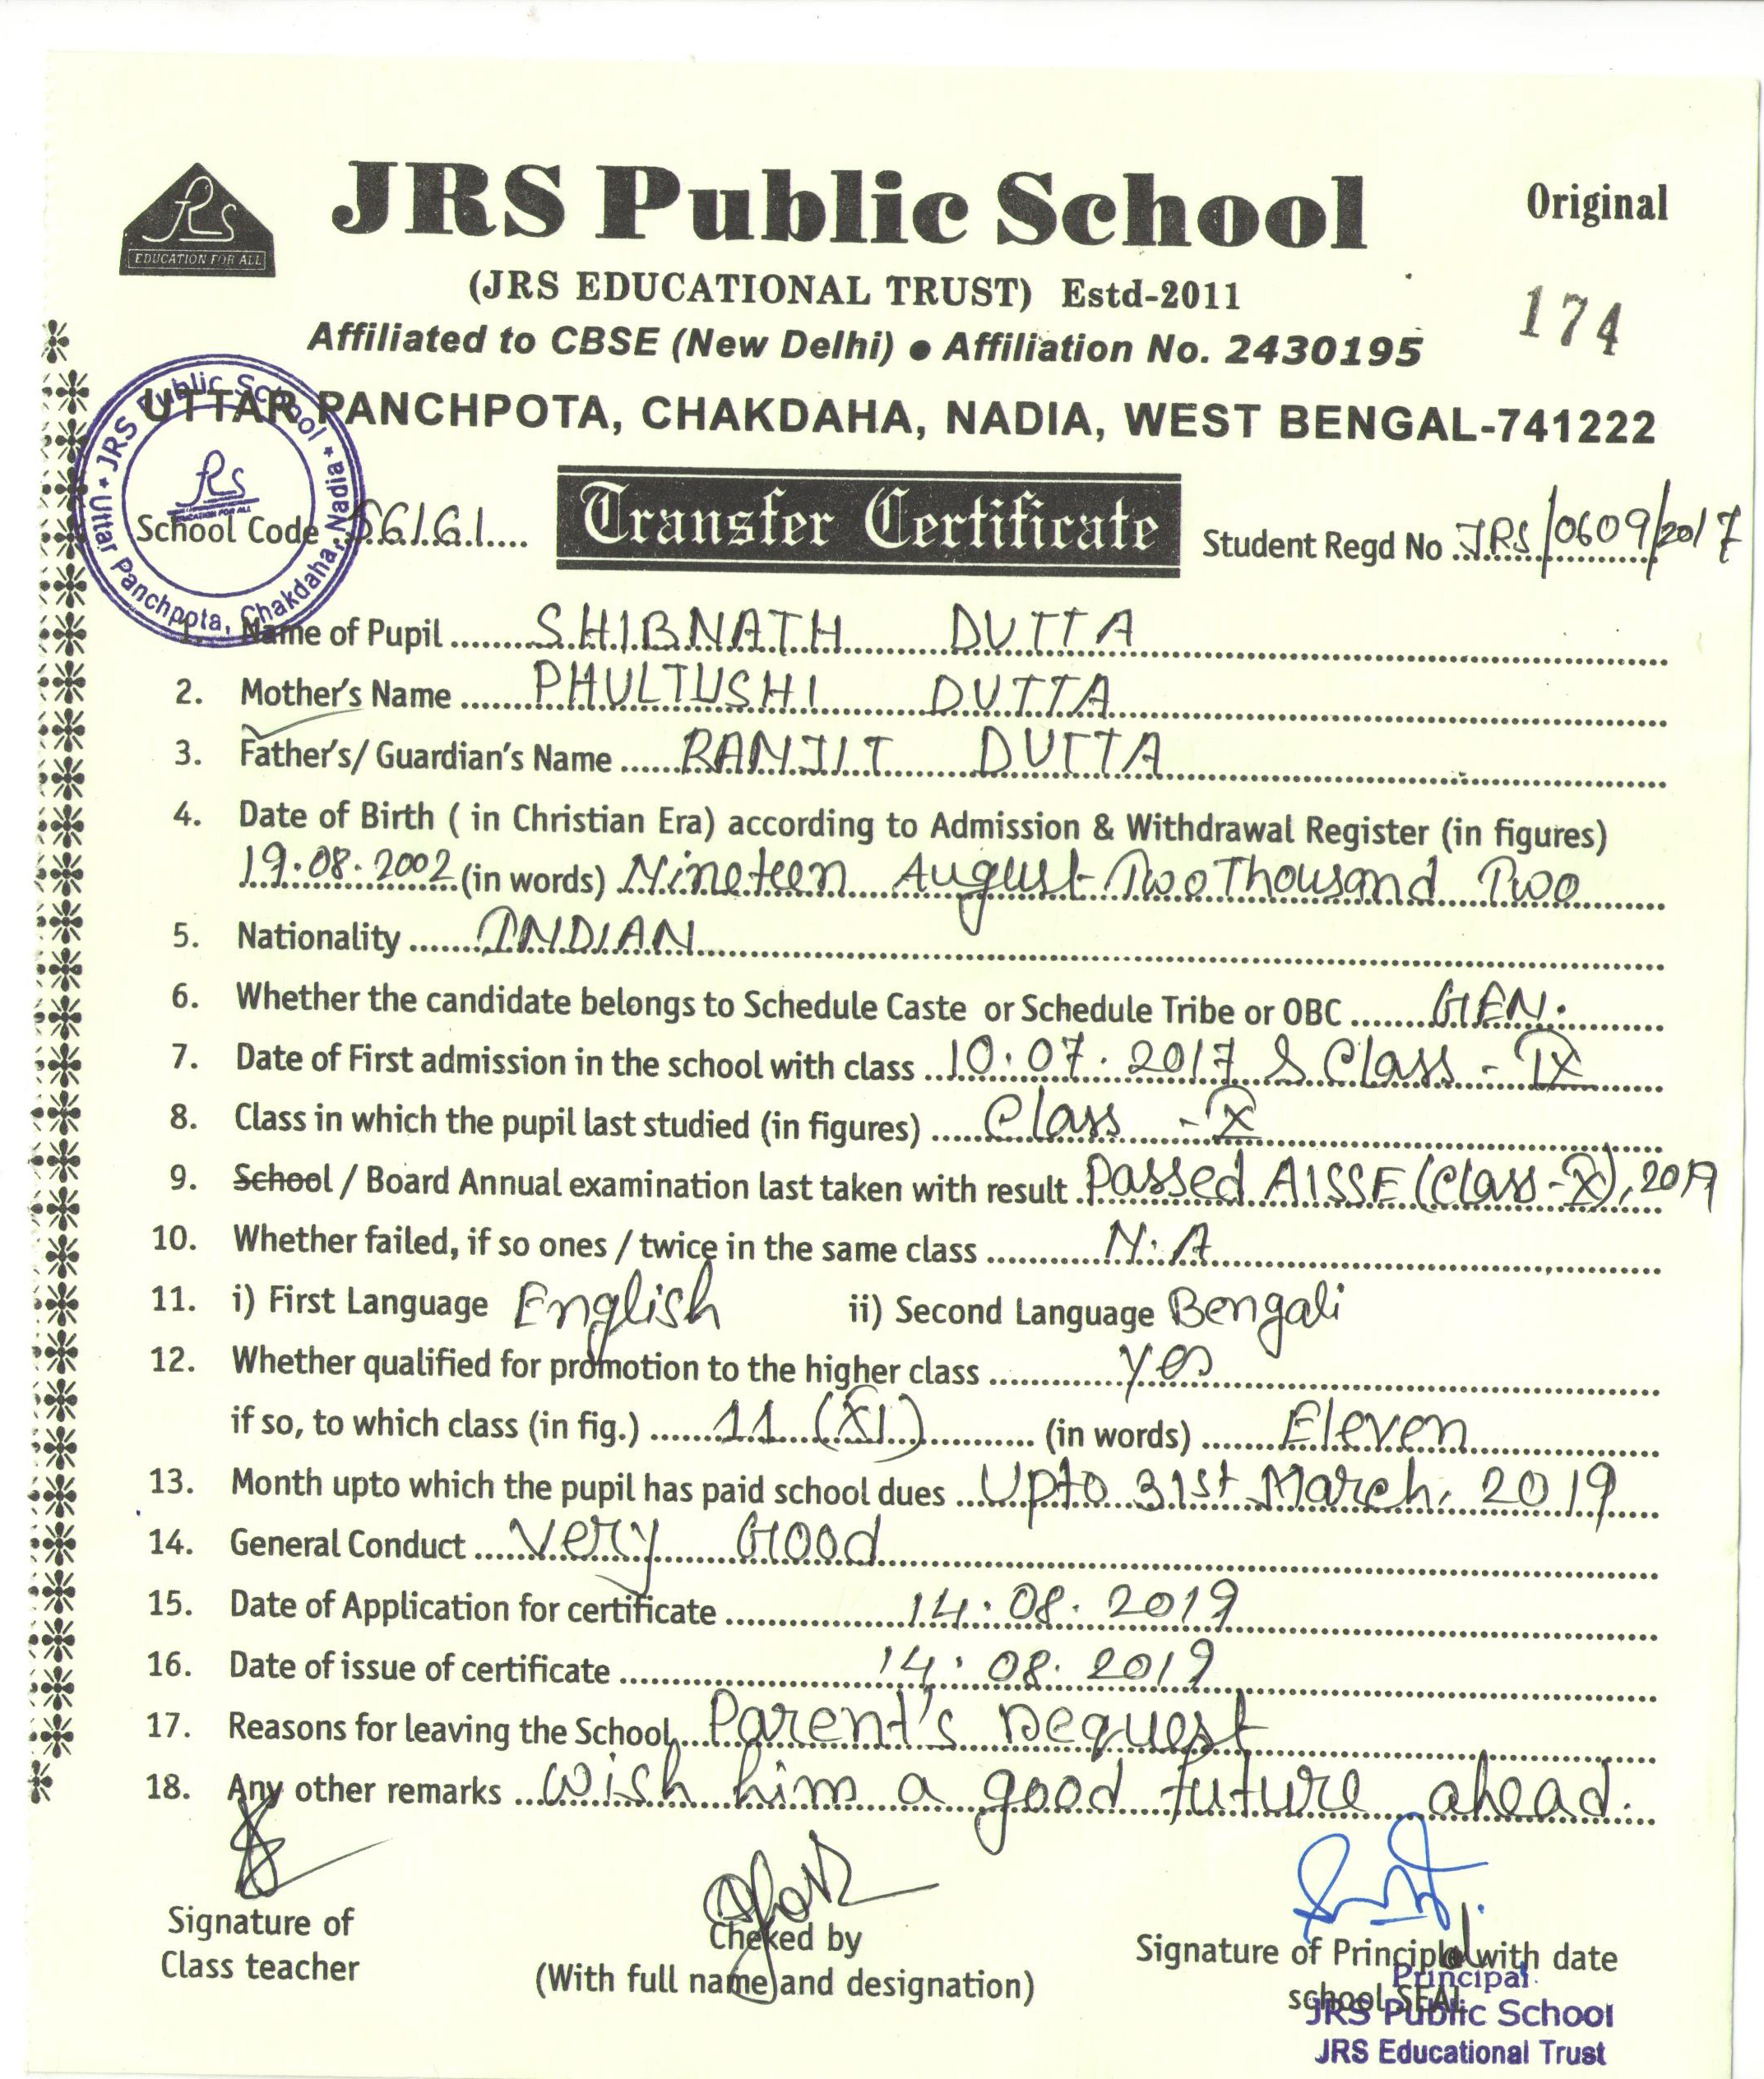 JRS Public School
Original
EDUCATION FOR ALL
(JRS EDUCATIONAL TRUST) Estd-2011
174
Affiliated to CBSE (New Delhi) ● Affiliation No. 2430195
UTTAR PANCHPOTA, CHAKDAHA, NADIA, WEST BENGAL-741222
JRS Public School * Uttar Panchpota, Chakdaha, Nadia *
JRS
EDUCATION FOR ALL
School Code 56161
Transfer Certificate
Student Regd No JRS/0609/2017
1. Name of Pupil SHIBNATH DUTTA
2. Mother's Name PHULTUSHI DUTTA
3. Father's/ Guardian's Name RANJIT DUTTA
4. Date of Birth ( in Christian Era) according to Admission & Withdrawal Register (in figures)
19.08.2002 (in words) Nineteen August Two Thousand Two
5. Nationality INDIAN
6. Whether the candidate belongs to Schedule Caste or Schedule Tribe or OBC GEN.
7. Date of First admission in the school with class 10.07.2017 & Class - IX
8. Class in which the pupil last studied (in figures) Class - X
9. School / Board Annual examination last taken with result Passed AISSE (Class-X), 2019
10. Whether failed, if so ones / twice in the same class N.A
11. i) First Language English ii) Second Language Bengali
12. Whether qualified for promotion to the higher class Yes
if so, to which class (in fig.) 11 (XI) (in words) Eleven
13. Month upto which the pupil has paid school dues Upto 31st March, 2019
14. General Conduct Very Good
15. Date of Application for certificate 14.08.2019
16. Date of issue of certificate 14.08.2019
17. Reasons for leaving the School Parent's request
18. Any other remarks Wish him a good future ahead.
Signature of
Class teacher
Cheked by
(With full name and designation)
Signature of Principlal with date
school SEAL
Principal
JRS Public School
JRS Educational Trust